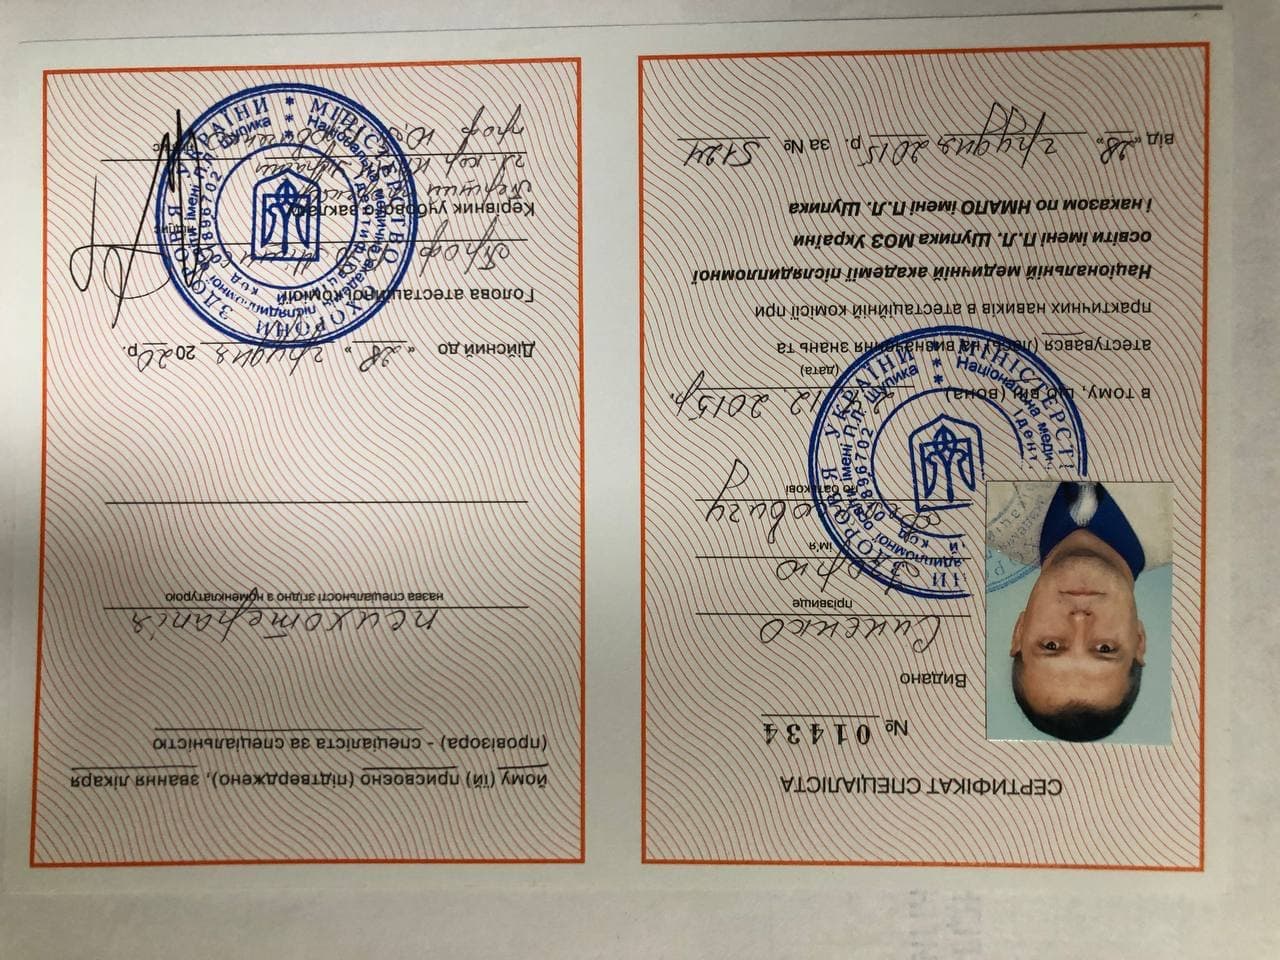 СЕРТИФІКАТ СПЕЦІАЛІСТА
№ 01434
Видано
Синєнко
прізвище
Ігорю
ім'я
по батькові
в тому, що він (вона) 12. 2015р.
(дата)
атестувався (лась) на визначення знань та
практичних навиків в атестаційній комісії при
Національній медичній академії післядипломної
освіти імені П.Л. Шупика МОЗ України
і наказом по НМАПО імені П.Л. Шупика
від «28» грудня 2015 р. за № 5124
йому (їй) присвоєно (підтверджено), звання лікаря
(провізора) - спеціаліста за спеціальністю
психотерапія
назва спеціальності згідно з номенклатурою
Дійсний до «28» грудня 2020р.
Голова атестаційної комісії
Проф
підпис
Керівник учбового закладу
Перший проректор
чл-кор НАМН України
підпис
проф Ю.
МІНІСТЕРСТВО ОХОРОНИ ЗДОРОВ'Я УКРАЇНИ
Національна медична академія післядипломної освіти імені П.Л. Шупика
Ідентифікаційний код 01896702